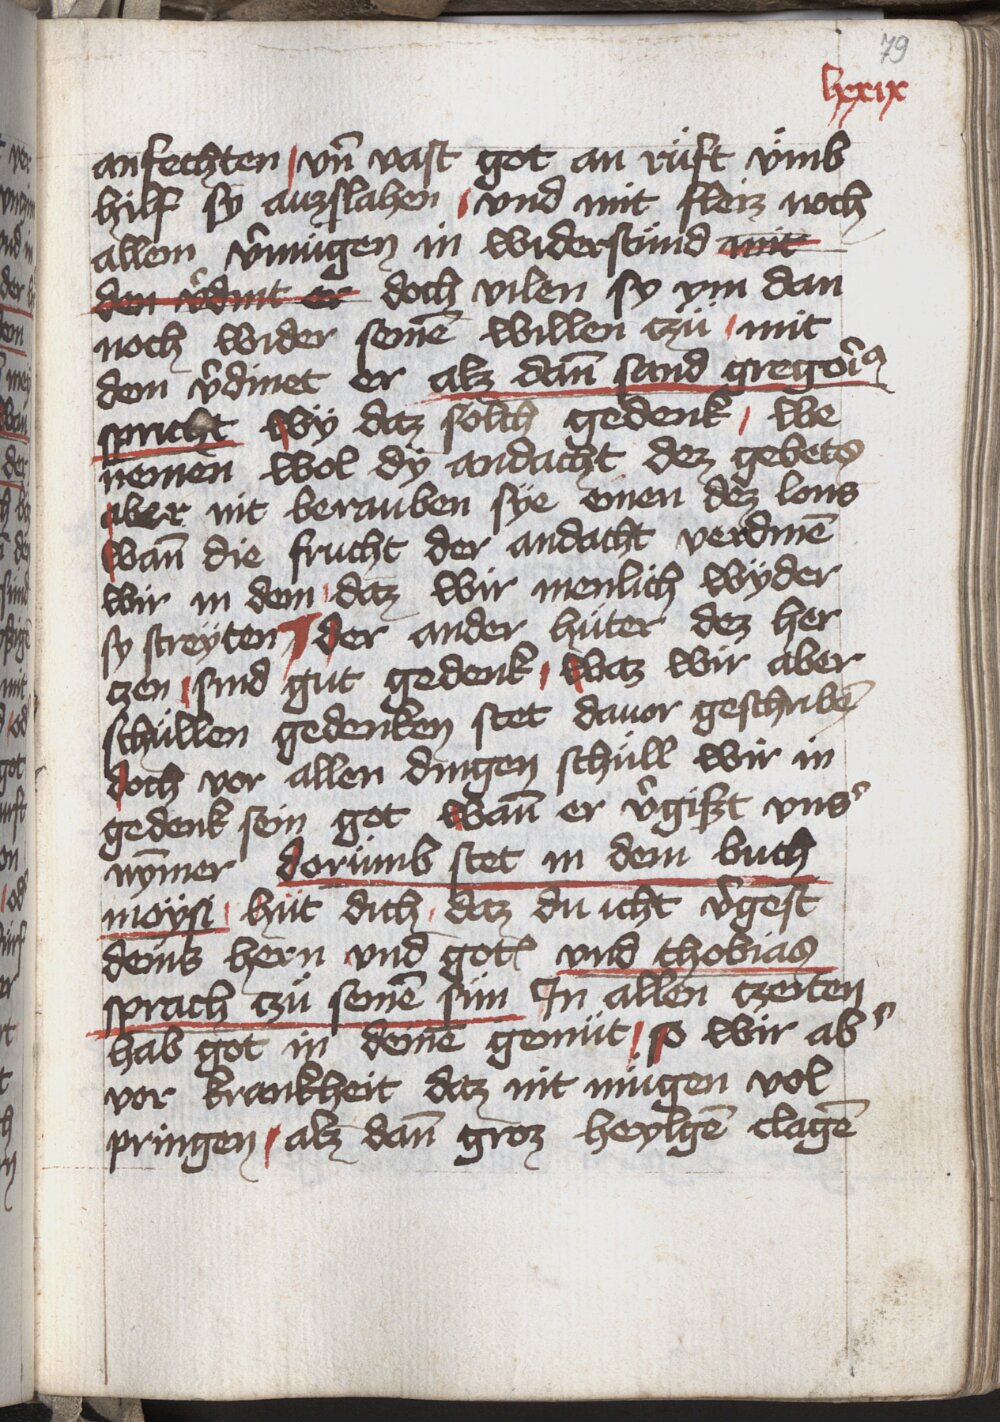 79
lxxix
anfechten / vn̄ vast got an rüft vmb
hilf sy auzslahen / vnd mit fleiz noch
allem v̾mügen in widerstünd mit
den v̾dint er doch vilen sy ym dan
noch wider seinē willen czü / mit
dem v̾dinet er alz dan̄ sand gregoriꝰ
spricht wy daz solch gedenk / we
nemen wol dy andacht dez gebets
aber nit berauben sye einen dez lons
wan̄ die frucht der andacht verdinē
wir in dem / daz wir menlich wyder
sy streyten / der ander hüter dez her
czen / sind gut gedenk / waz wir aber
schüllen gedenken stet dauor geschribē
doch vor allen dingen schüll wir in
gedenk sein got wan̄ er v̾gißt vns̾
nȳmer dorümb stet in dem buch
moysi / hüt dich / daz du icht v̾gest
deins hern vnd gotꝭ vnd thobias
sprach czü seinē sün In allen czeiten
hab got in deinē gemüt / so wir ab̾
vor krankheit daz nit mügen vol
pringen / alz dan̄ groz heylgē clagē